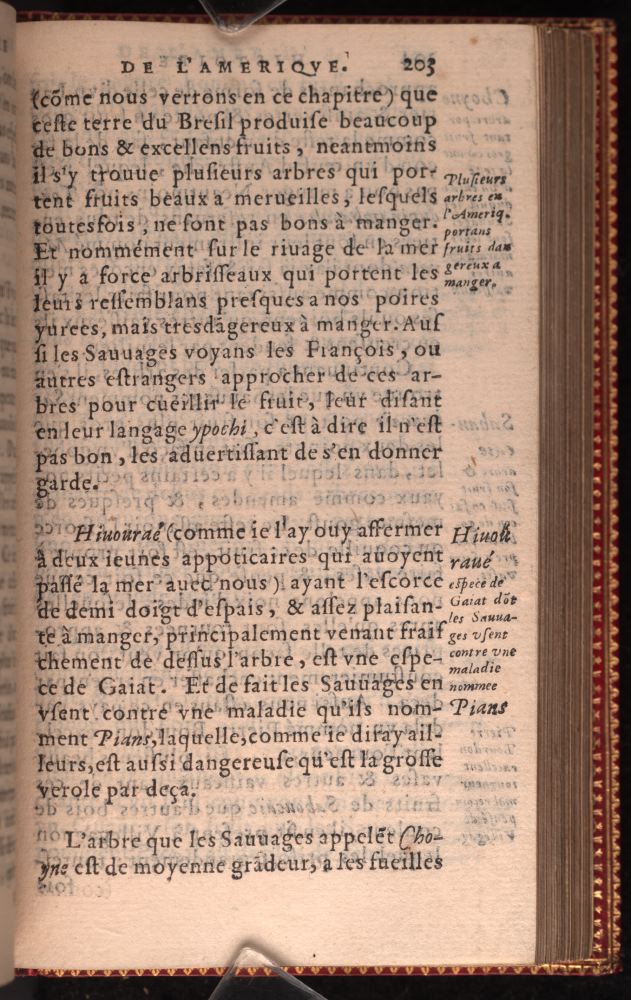 DE L'AMERIQVE. 203
(cõme nous verrons en ce chapitre) que
ceste terre du Bresil produise beaucoup
de bons & excellens fruits, neantmoins
il s'y trouue plusieurs arbres qui por-
tent fruits beaux a merueilles, lesquels
toutesfois, ne sont pas bons à manger.
Et nommément sur le riuage de la mer
il y a force arbrisseaux qui portent les
leurs ressemblans presques a nos poires
yurees, mais tresdãgereux à manger. Aus
si les Sauuages voyans les François, ou
autres estrangers approcher de ces ar-
bres pour cueillir le fruit, leur disant
en leur langage ypochi, c'est à dire il n'est
pas bon, les aduertissant de s'en donner
garde.
Plusieurs
arbres en
l'Ameriq.
portans
fruits dan
gereux a
manger.
Hiuouraé (comme ie l'ay ouy affermer
à deux ieunes appoticaires qui auoyent
passé la mer auec nous) ayant l'escorce
de demi doigt d'espais, & assez plaisan-
te à manger, principalement venant frais
chement de dessus l'arbre, est vne espe-
ce de Gaiat. Et de fait les Sauuages en
vsent contre vne maladie qu'ils nom-
ment Pians, laquelle, comme ie diray ail-
leurs, est aussi dangereuse qu'est la grosse
verole par deça.
Hiuou
raué
espece de
Gaiat dõt
les Sauua-
ges vsent
contre vne
maladie
nommee
Pians
L'arbre que les Sauuages appelẽt Cho-
yne est de moyenne grãdeur, a les fueilles